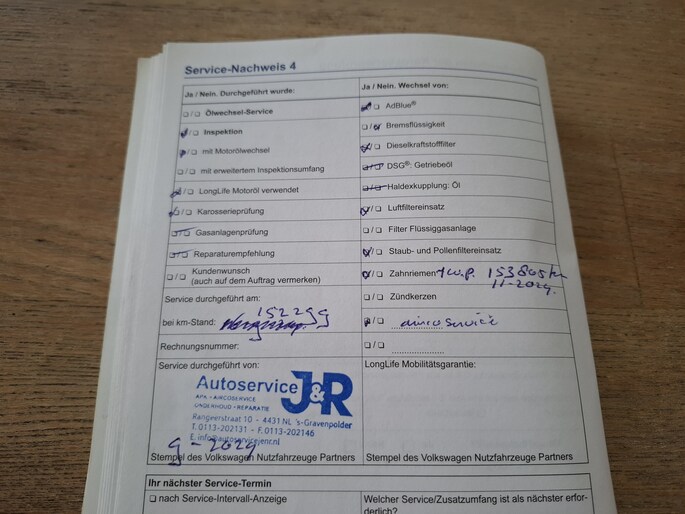 Service-Nachweis 4
Ja / Nein. Durchgeführt wurde:
Ölwechsel-Service
Inspektion
mit Motorölwechsel
mit erweitertem Inspektionsumfang
LongLife Motoröl verwendet
Karosserieprüfung
Gasanlagenprüfung
Reparaturempfehlung
Kundenwunsch
(auch auf dem Auftrag vermerken)
Service durchgeführt am:
152299
bei km-Stand:
Rechnungsnummer:
Service durchgeführt von:
Autoservice J&R
APK • AIRCOSERVICE
ONDERHOUD • REPARATIE
Rangeerstraat 10 - 4431 NL 's-Gravenpolder
T. 0113-202131 - F. 0113-202146
E. info@autoservicejenr.nl
9-2029
Stempel des Volkswagen Nutzfahrzeuge Partners
Ja / Nein. Wechsel von:
AdBlue®
Bremsflüssigkeit
Dieselkraftstofffilter
DSG®: Getriebeöl
Haldexkupplung: Öl
Luftfiltereinsatz
Filter Flüssiggasanlage
Staub- und Pollenfiltereinsatz
Zahnriemen + w.p. 153805 km
11-2029.
Zündkerzen
airco service
LongLife Mobilitätsgarantie:
Stempel des Volkswagen Nutzfahrzeuge Partners
Ihr nächster Service-Termin
nach Service-Intervall-Anzeige
Welcher Service/Zusatzumfang ist als nächster erfor-
derlich?